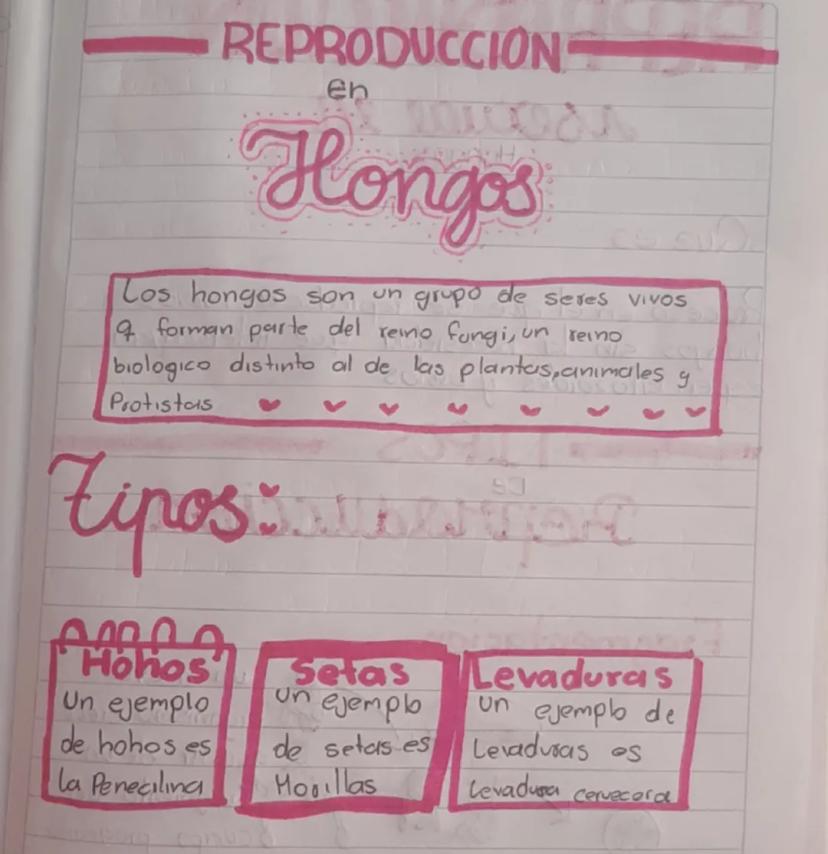 REPRODUCCION
en
Hongos
Los hongos son un grupo de seres vivos
q forman parte del reino fungi, un reino
biologico distinto al de las plantas, animales y
Protistas
Tipos:
Hohos
Un ejemplo
de hohos es
la Penecilina
Setas
un ejemplo
de setas es
Morillas
Levaduras
un ejemplo de
Levaduras es
Levadura cervecera